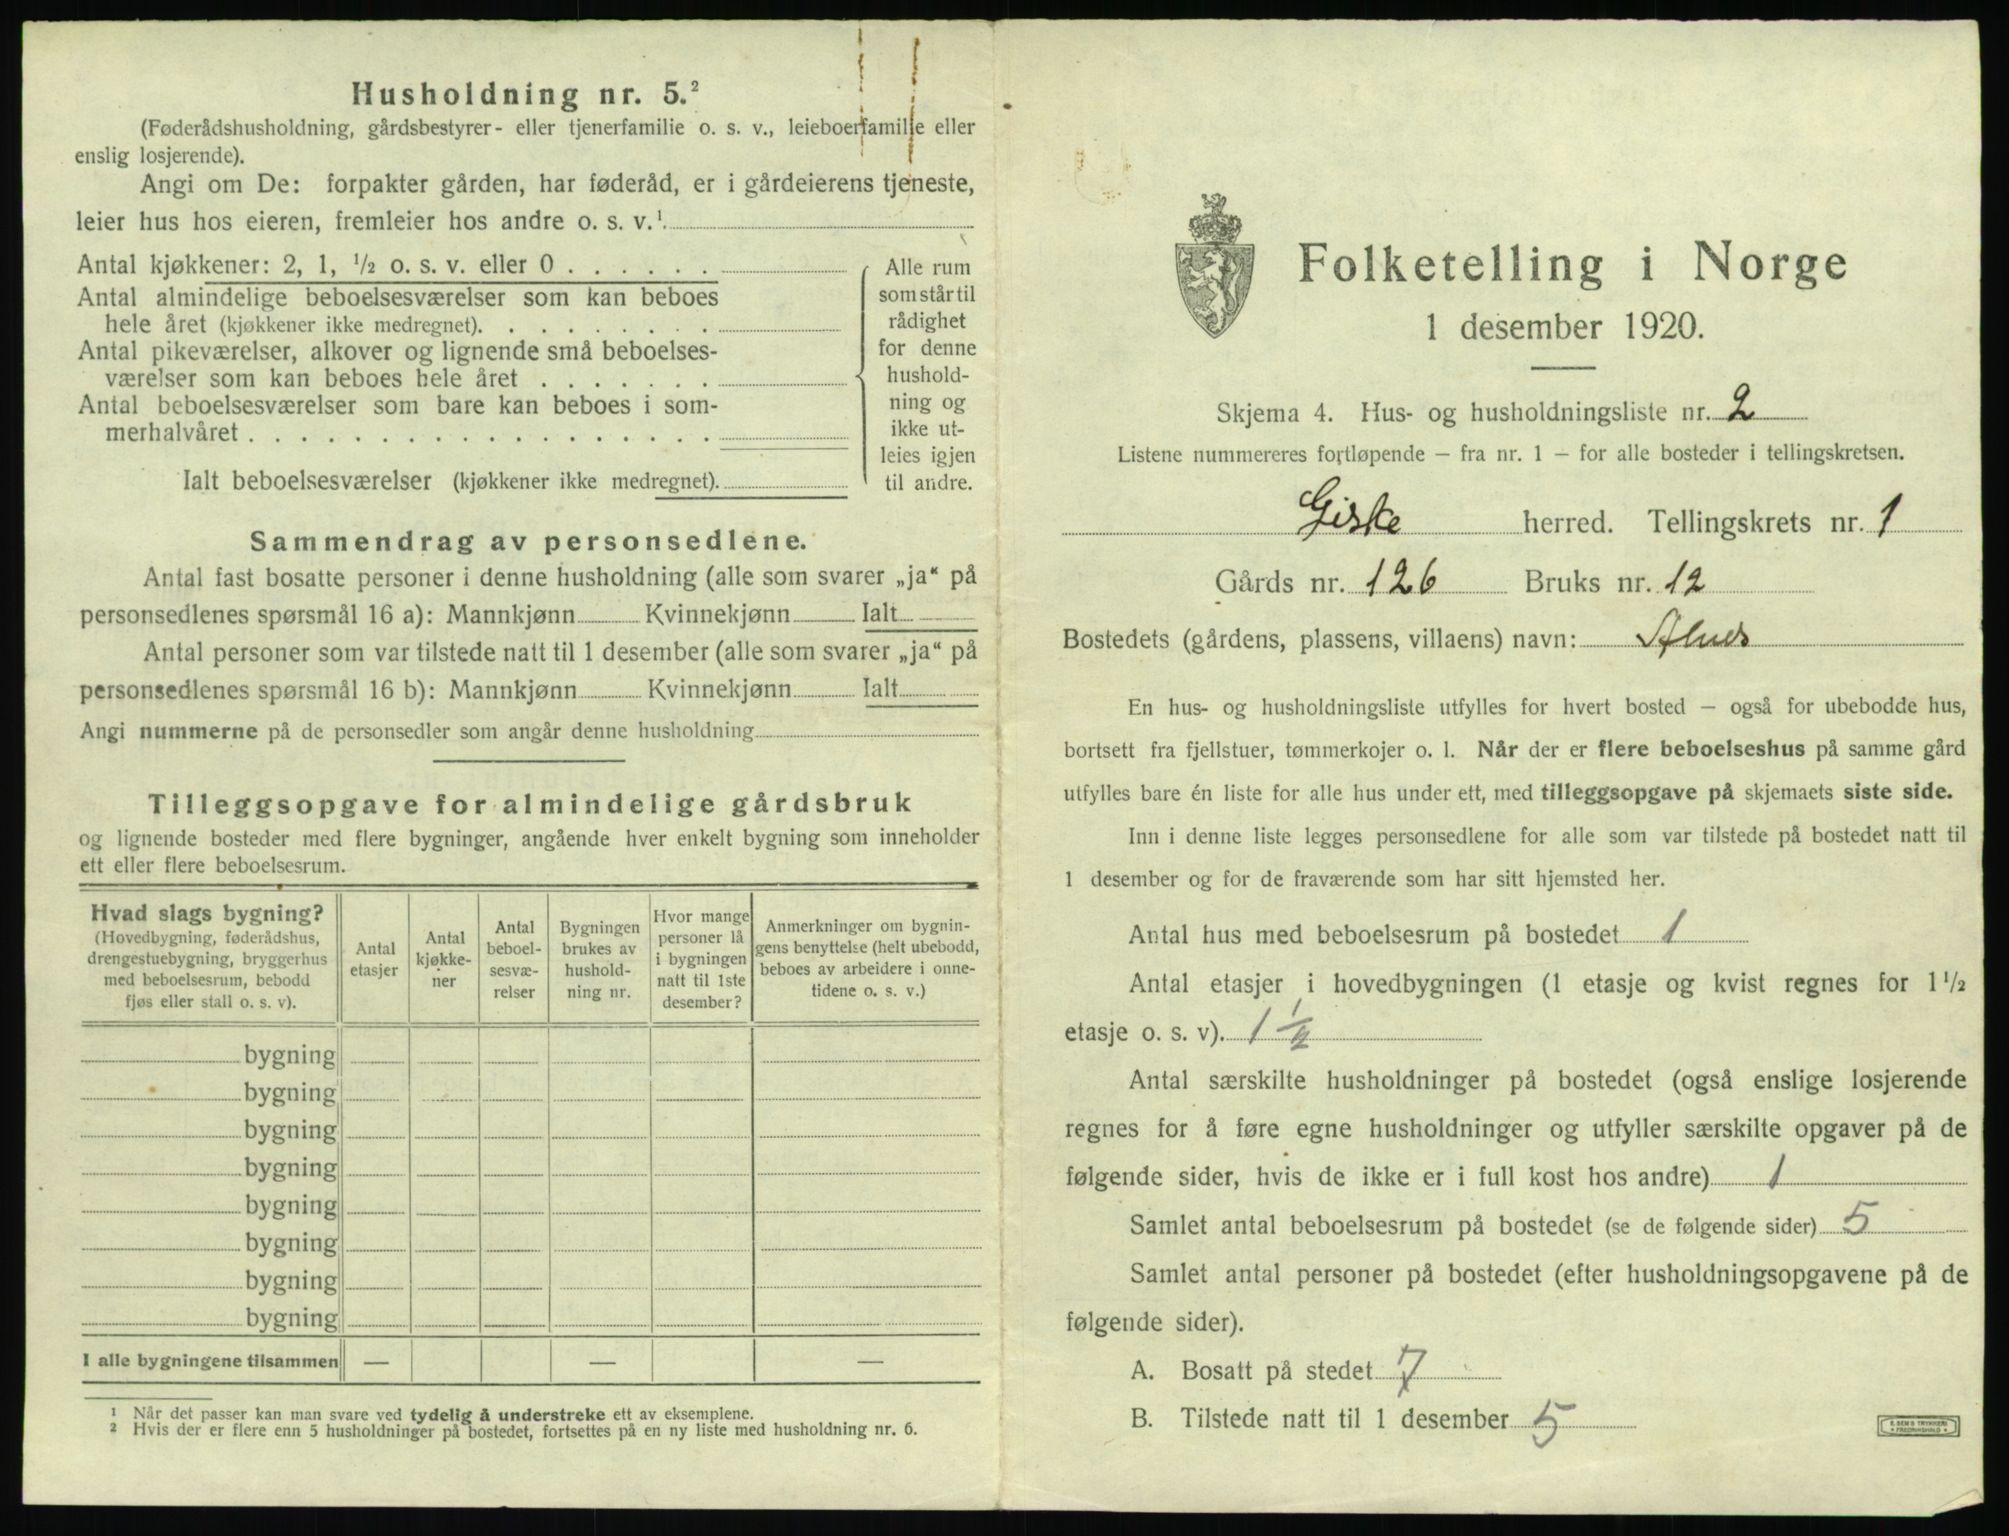 Husholdning nr. 5.²
(Føderådshusholdning, gårdsbestyrer- eller tjenerfamilie o. s. v., leieboerfamilie eller
enslig losjerende).
Angi om De: forpakter gården, har føderåd, er i gårdeierens tjeneste,
leier hus hos eieren, fremleier hos andre o. s. v.¹
Antal kjøkkener: 2, 1, ½ o. s. v. eller 0 . . . . . .
Antal almindelige beboelsesværelser som kan beboes
hele året (kjøkkener ikke medregnet). . . . . . . . .
Antal pikeværelser, alkover og lignende små beboelses-
værelser som kan beboes hele året . . . . . . .
Antal beboelsesværelser som bare kan beboes i som-
merhalvåret . . . . . . . . . . . . . . . . . .
Ialt beboelsesværelser (kjøkkener ikke medregnet).
Alle rum
som står til
rådighet
for denne
hushold-
ning og
ikke ut-
leies igjen
til andre.
Sammendrag av personsedlene.
Antal fast bosatte personer i denne husholdning (alle som svarer „ja“ på
personsedlenes spørsmål 16 a): Mannkjønn Kvinnekjønn Ialt
Antal personer som var tilstede natt til 1 desember (alle som svarer „ja“ på
personsedlenes spørsmål 16 b): Mannkjønn Kvinnekjønn Ialt
Angi nummerne på de personsedler som angår denne husholdning
Tilleggsopgave for almindelige gårdsbruk
og lignende bosteder med flere bygninger, angående hver enkelt bygning som inneholder
ett eller flere beboelsesrum.
Hvad slags bygning?
(Hovedbygning, føderådshus,
drengestuebygning, bryggerhus
med beboelsesrum, bebodd
fjøs eller stall o. s. v).
Antal
etasjer
Antal
kjøkke-
ner
Antal
beboel-
sesvæ-
relser
Bygningen
brukes av
hushold-
ning nr.
Hvor mange
personer lå
i bygningen
natt til 1ste
desember?
Anmerkninger om bygnin-
gens benyttelse (helt ubebodd,
beboes av arbeidere i onne-
tidene o. s. v.)
bygning
bygning
bygning
bygning
bygning
bygning
bygning
bygning
I alle bygningene tilsammen — — —
¹ Når det passer kan man svare ved tydelig å understreke ett av eksemplene.
² Hvis der er flere enn 5 husholdninger på bostedet, fortsettes på en ny liste med husholdning nr. 6.
Folketelling i Norge
1 desember 1920.
Skjema 4. Hus- og husholdningsliste nr. 2
Listene nummereres fortløpende – fra nr. 1 – for alle bosteder i tellingskretsen.
Giske herred. Tellingskrets nr. 1
Gårds nr. 126 Bruks nr. 12
Bostedets (gårdens, plassens, villaens) navn:
En hus- og husholdningsliste utfylles for hvert bosted – også for ubebodde hus,
bortsett fra fjellstuer, tømmerkojer o. l. Når der er flere beboelseshus på samme gård
utfylles bare én liste for alle hus under ett, med tilleggsopgave på skjemaets siste side.
Inn i denne liste legges personsedlene for alle som var tilstede på bostedet natt til
1 desember og for de fraværende som har sitt hjemsted her.
Antal hus med beboelsesrum på bostedet 1
Antal etasjer i hovedbygningen (1 etasje og kvist regnes for 1½
etasje o. s. v). 1½
Antal særskilte husholdninger på bostedet (også enslige losjerende
regnes for å føre egne husholdninger og utfyller særskilte opgaver på de
følgende sider, hvis de ikke er i full kost hos andre) 1
Samlet antal beboelsesrum på bostedet (se de følgende sider) 5
Samlet antal personer på bostedet (efter husholdningsopgavene på de
følgende sider).
A. Bosatt på stedet 7
B. Tilstede natt til 1 desember 5
E. SEM'S TRYKKERI
FREDRIKSHALD